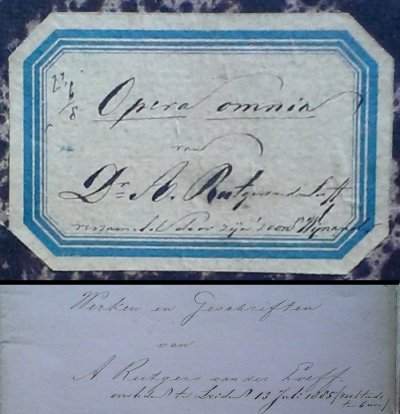 22/6/8
Opera omnia
van
Dr. A. Rutgers v.d. Loeff
verzameld door zijn zoon Wijnand.
Werken en Geschriften
van
A Rutgers van der Loeff.
overleden te Leiden 13 Juli 1885